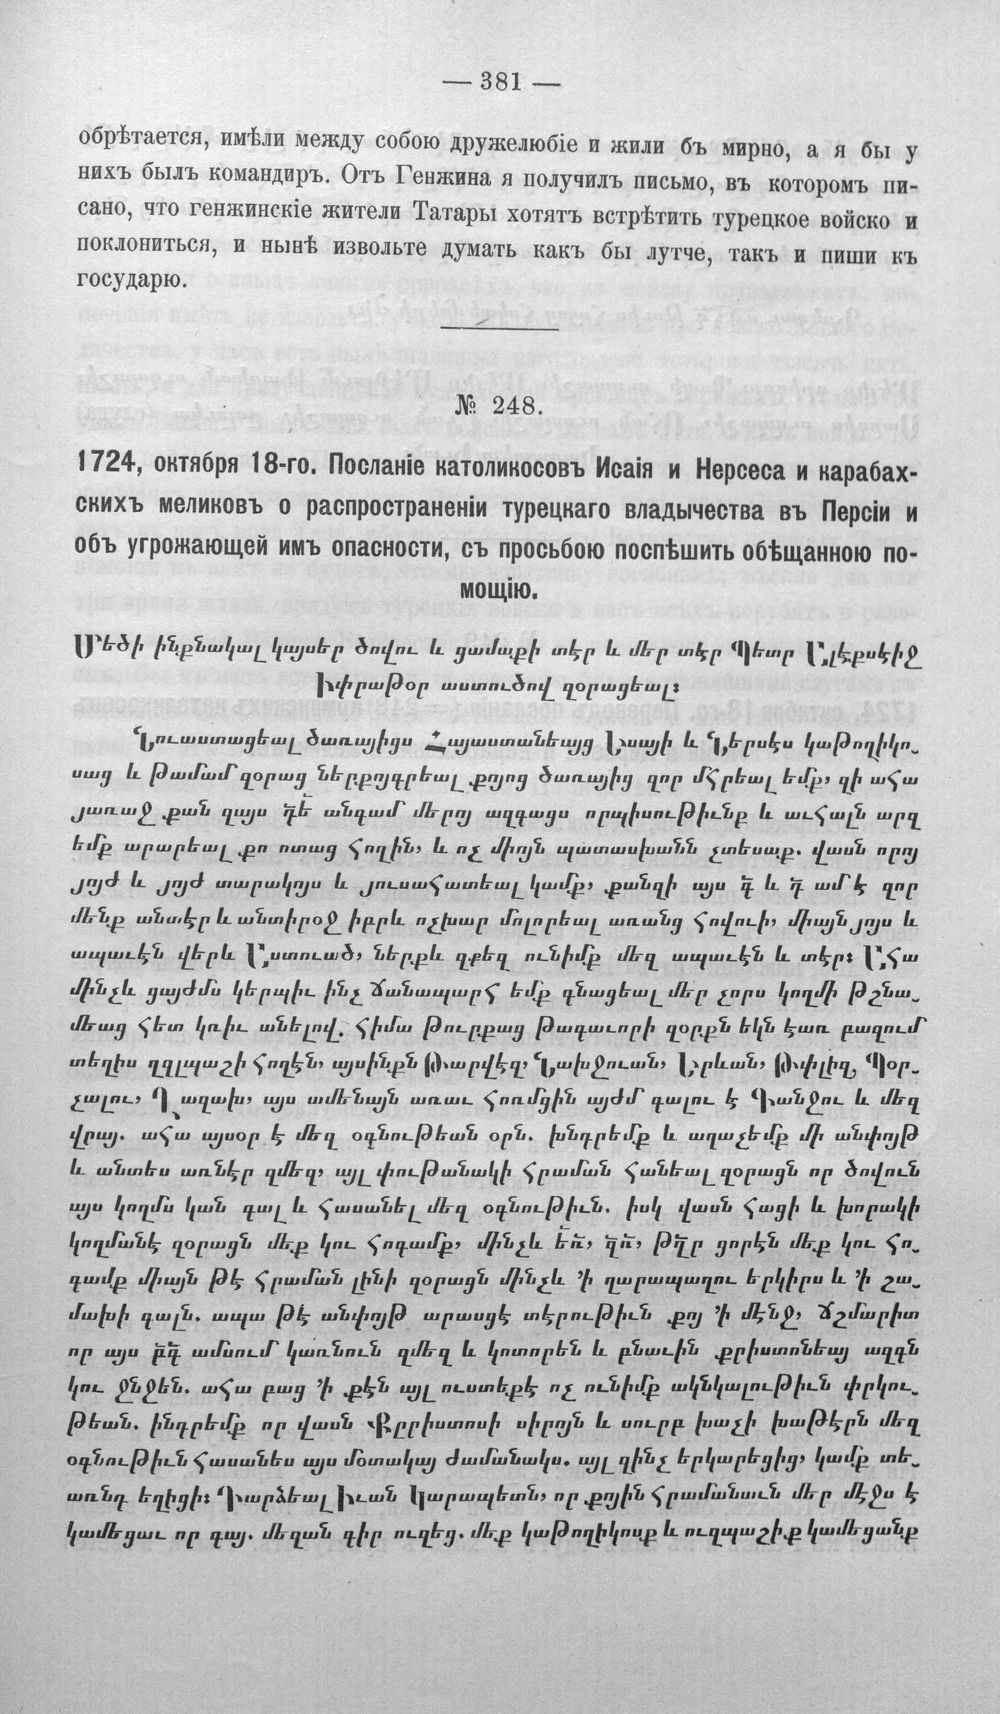 — 381 —
обрѣтается, имѣли между собою дружелюбіе и жили бъ мирно, а я бы у
нихъ былъ командиръ. Отъ Генжина я получилъ письмо, въ которомъ пи-
сано, что генжинскіе жители Татары хотятъ встрѣтить турецкое войско и
поклониться, и нынѣ извольте думать какъ бы лутче, такъ и пиши къ
государю.
№ 248.
1724, октября 18-го. Посланіе католикосовъ Исаія и Нерсеса и карабах-
скихъ меликовъ о распространеніи турецкаго владычества въ Персіи и
объ угрожающей имъ опасности, съ просьбою поспѣшить обѣщанною по-
мощію.
Մեծի ինքնակալ կայսեր ծովու և ցամաքի տէր և մեր տէր Պետր Ալէքսէիջ
Իփրաթօր աստուծով զօրացեալ։
Նուաստացեալ ծառայիցս Հայաստանեայց Եսայի և Ներսէս կաթողիկո-
սաց և թամամ զօրաց ներքոյգրեալ քոյոց ծառայից զոր մՀրեալ եմք, զի աՀա
յառաջ քան զայս դէ անգամ մերոյ ազգացս որպիսութիւնք և աւՀալն արզ
եմք արարեալ քո ոտաց Հողին, և ոչ միոյն պատասխանն չտեսաք. վասն որոյ
յոյժ և յոյժ տարակոյս և յուսաՀատեալ կամք, քանզի այս գ և դ ամ է զոր
մենք անտէր և անտիրօջ իբրև ոչխար մոլորեալ առանց Հովուի, միայն յոյս և
ապաւէն վերև Աստուած, ներքև զքեզ ունիմք մեզ ապաւէն և տէր։ ԱՀա
մինչև ցայժմս կերպիւ ինչ ՃանապարՀ եմք գնացեալ մեր չորս կողմի թշնա-
մեաց Հետ կռիւ անելով. Հիմա թուրքաց թագաւորի զօրքն եկն էառ բազում
տեղիս ղզլպաշի Հողէն, այսինքն Թարվէզ, Նախջուան, Երևան, Թփլիզ, Պօր-
չալու, Ղազախ, այս ամենայն առաւ Հոռմցին այժմ գալու է Գանջու և մեզ
վրայ. աՀա այսօր է մեզ օգնութեան օրն. խնդրեմք և աղաչեմք մի անփոյթ
և անտես առնէր զմեզ, այլ փութանակի Հրաման Հանեալ զօրացն որ ծովուն
այս կողմս կան գալ և Հասանել մեզ օգնութիւն. իսկ վասն Հացի և խորակի
կողմանէ զօրացն մեք կու Հոգամք, մինչև
ցորէն մեք կու Հո-
գամք միայն թէ Հրաման լինի զօրացն մինչև ՚ի ղարապաղու երկիրս և ՚ի շա-
մախի գալն. ապա թէ անփոյթ արասցէ տէրութիւն քոյ ՚ի մէնջ, Ճշմարիտ
որ այս
ամսում կառնուն զմեզ և կոտորեն և բնաւին քրիստոնեայ ազգն
կու ջնջեն. աՀա բաց ՚ի քէն այլ ուստեքէ ոչ ունիմք ակնկալութիւն փրկու-
թեան. ինդրեմք որ վասն Քըրիստոսի սիրոյն և սուրբ խաչի խաթէրն մեզ
օգնութիւն Հասանես այս մօտակայ ժամանակս. այլ զինչ երկարեցից, կամք տէ-
առնդ եղիցի։ Դարձեալ Իւան Կարապետն, որ քոյին Հրամանաւն մեր մէջս է
կամեցաւ որ գայ. մեզան գիր ուզեց. մեք կաթողիկոսք և ուզպաշիք կամեցանք